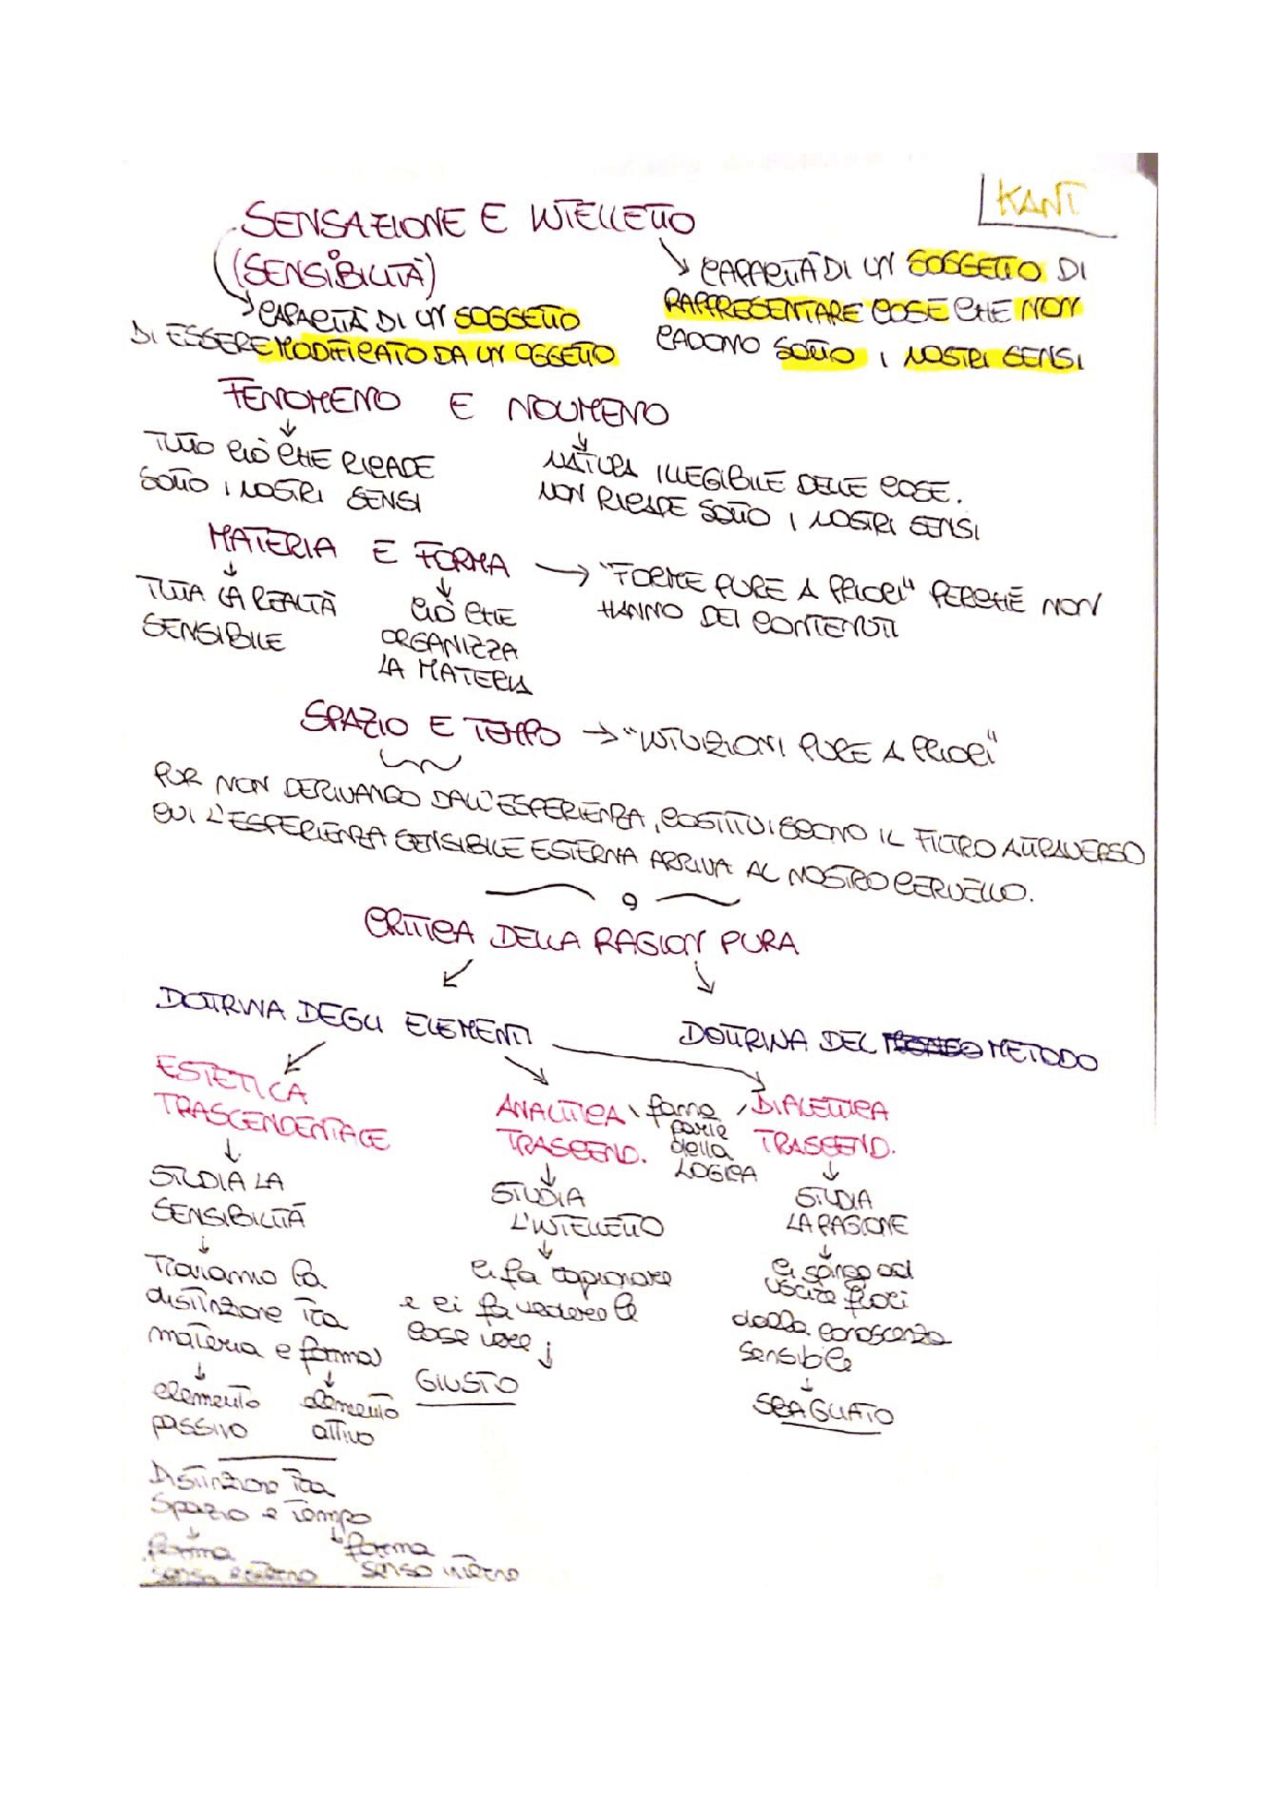 KANT
SENSAZIONE E INTELLETTO
(SENSIBILITÀ)
CAPACITÀ DI UN SOGGETTO
DI ESSERE MODIFICATO DA UN OGGETTO
CAPACITÀ DI UN SOGGETTO DI
RAPPRESENTARE COSE CHE NON
CADONO SOTTO I NOSTRI SENSI
FENOMENO E NOUMENO
TUTTO CIÒ CHE RICADE
SOTTO I NOSTRI SENSI
NATURA ILLEGIBILE DELLE COSE.
NON RICADE SOTTO I NOSTRI SENSI
MATERIA E FORMA → "FORME PURE A PRIORI" PERCHÉ NON
HANNO DEI CONTENUTI
TUTTA LA REALTÀ
SENSIBILE
CIÒ CHE
ORGANIZZA
LA MATERIA
SPAZIO E TEMPO → "INTUIZIONI PURE A PRIORI"
PUR NON DERIVANDO DALL'ESPERIENZA, COSTITUISCONO IL FILTRO ATTRAVERSO
CUI L'ESPERIENZA SENSIBILE ESTERNA ARRIVA AL NOSTRO CERVELLO.
CRITICA DELLA RAGION PURA
DOTTRINA DEGLI ELEMENTI
DOTTRINA DEL METODO
ESTETICA
TRASCENDENTALE
ANALITICA
TRASCEND.
fanno
parte
della
LOGICA
DIALETTICA
TRASCEND.
STUDIA LA
SENSIBILITÀ
STUDIA
L'INTELLETTO
STUDIA
LA RAGIONE
Troviamo la
distinzione tra
materia e forma
elemento
passivo
elemento
attivo
ci fa ragionare
e ci fa vedere le
cose vere
GIUSTO
ci spinge ad
uscire fuori
dalla conoscenza
sensibile
SBAGLIATO
Distinzione tra
Spazio e Tempo
forma
senso esterno
forma
senso interno